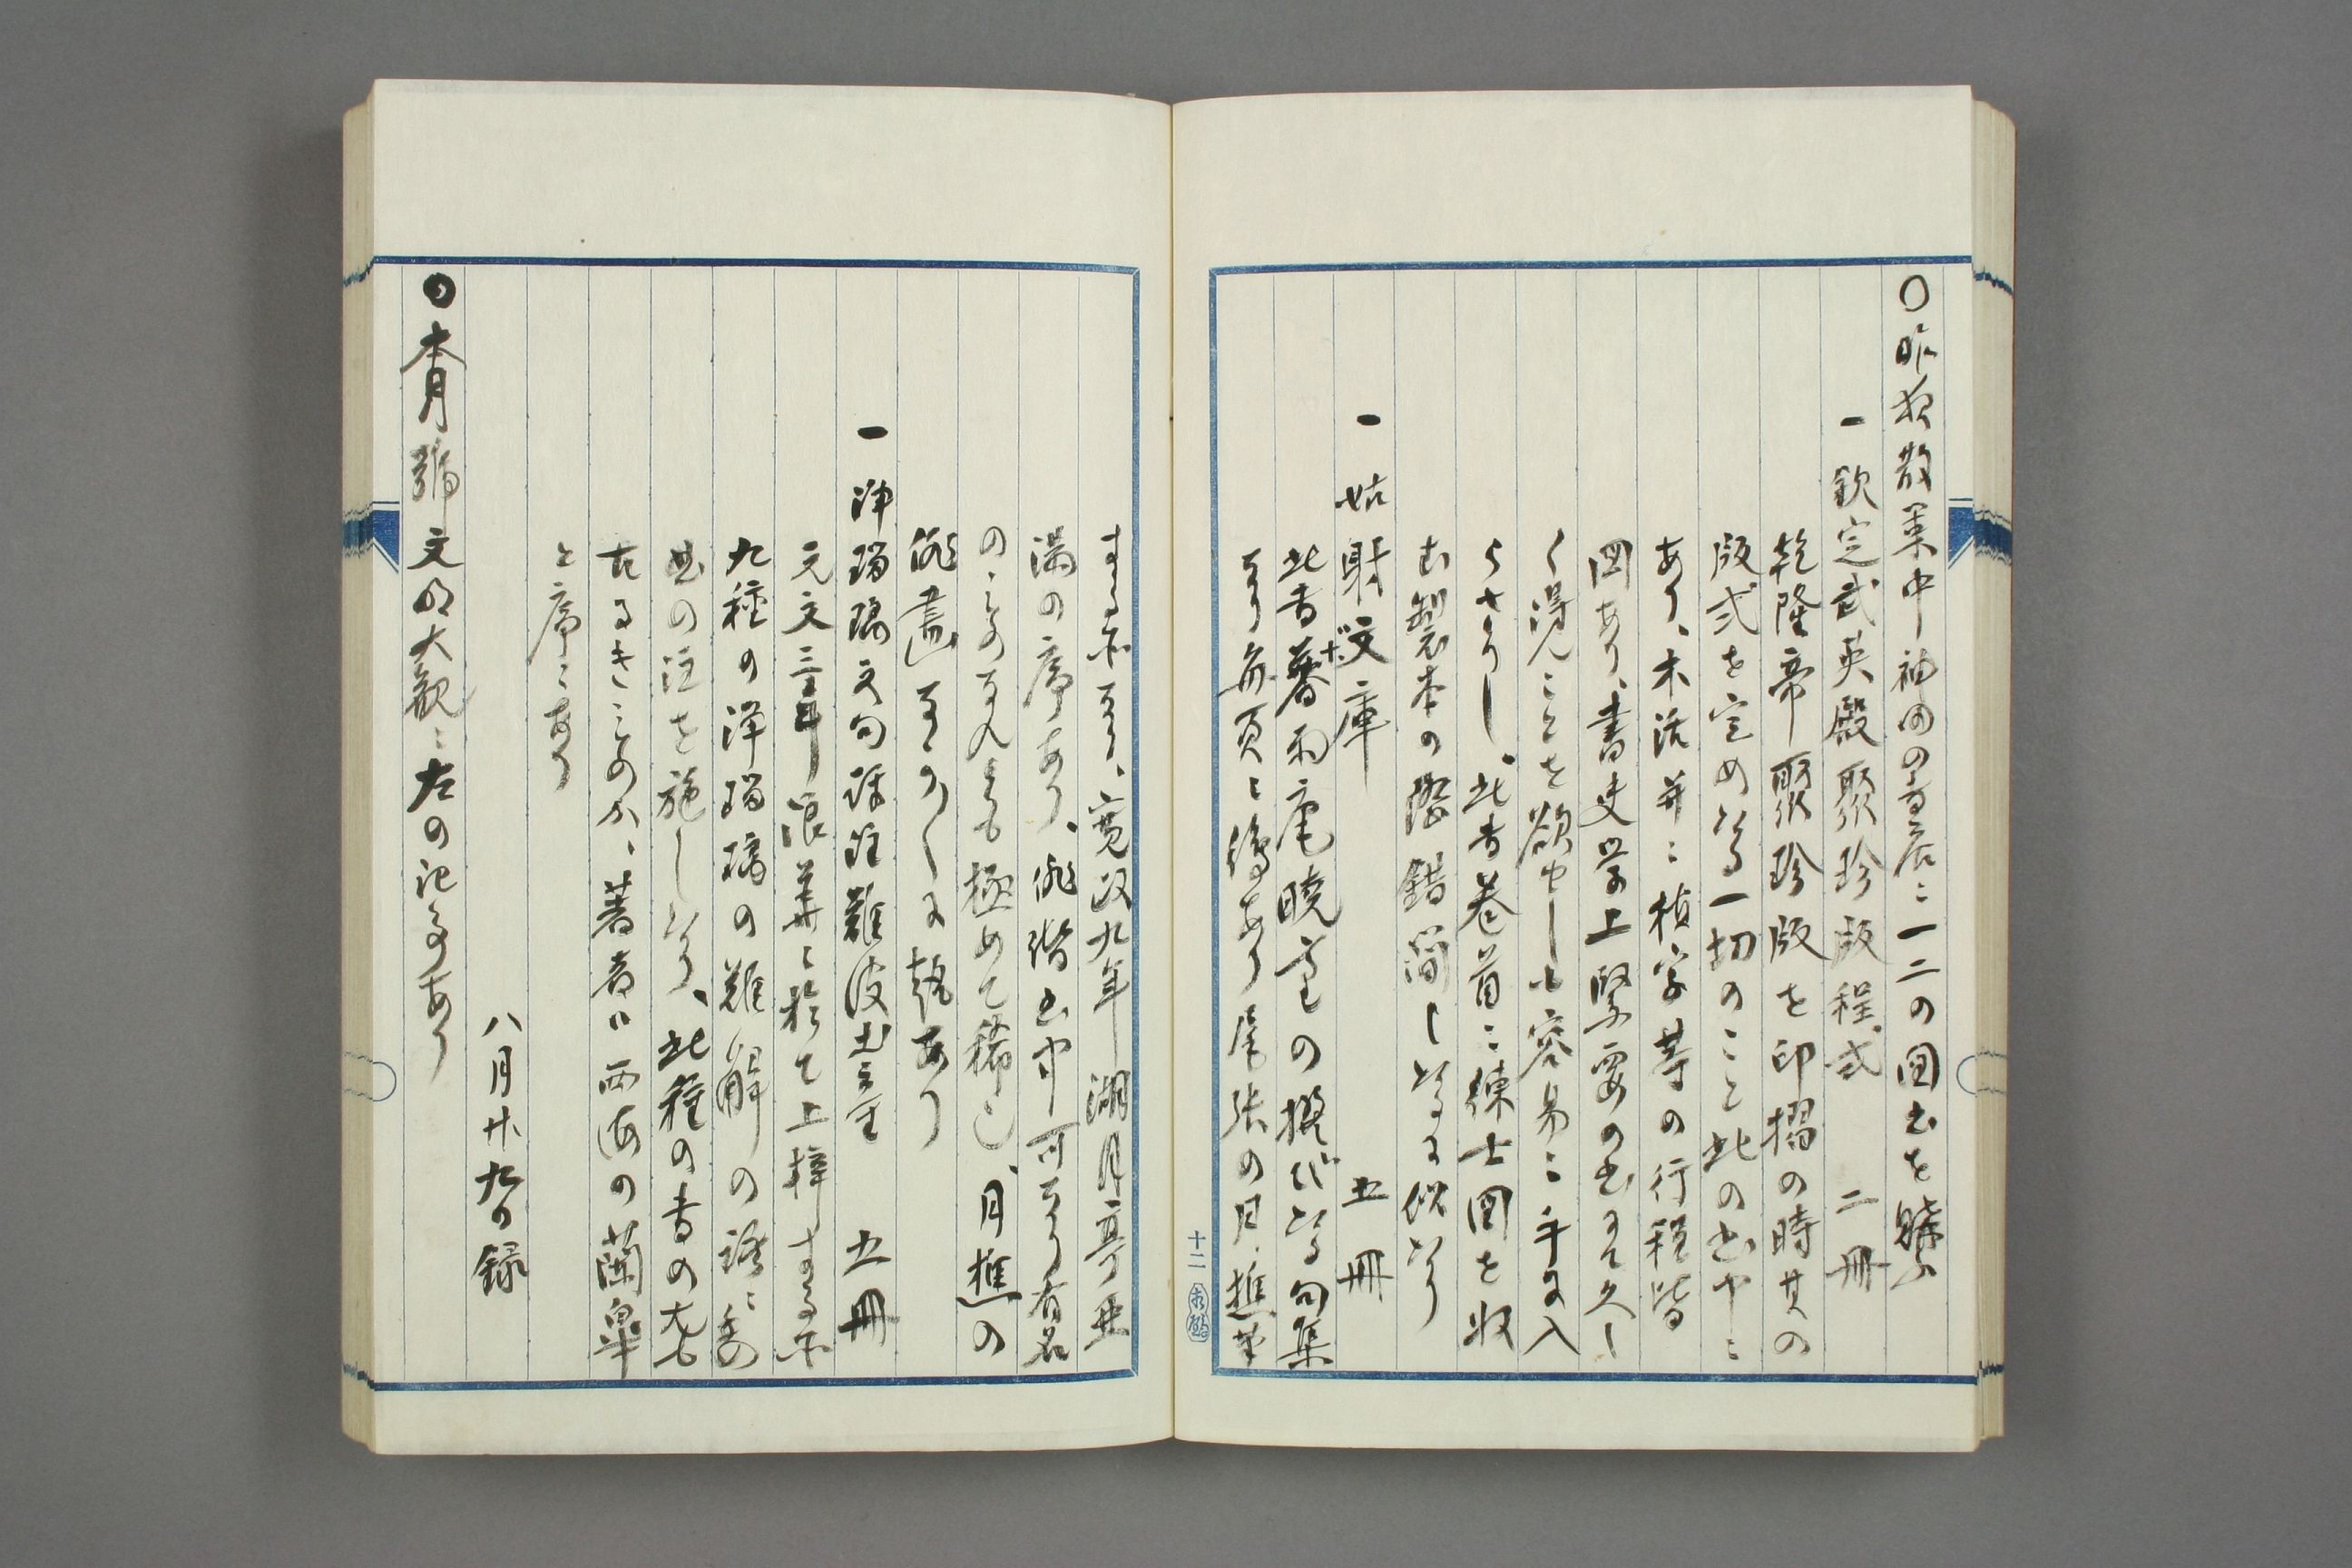 〇昨夜散策中神田の書店ニ一二の図書を購ふ
一 欽定武英殿聚珍版程式 二冊
乾隆帝聚珍版を印摺の時其の
版式を定めたる一切のこと此の書中ニ
あり、木活并ニ植字等の行程皆
図あり、書史学上緊要の書にて久し
く得んことを欲せしも容易ニ手に入
らさりし、此書巻首ニ練士図を収
む製本の際錯簡したるに似たり
一 姑射文庫 五冊
此書暮雨庵暁臺の撰びたる句集
なり毎頁ニ絵あり尾張の月樵筆
する所なり、寛政九年湖月亭亜
満の序あり、俳諧書中可なり有名
のものなれとも極めて稀也、月樵の
俳画なか〱に趣あり
一 浄瑠璃文句評註難波土産 五冊
元文三年浪華ニ於て上梓する所
九種の浄瑠璃の難解の語ニ委
曲の注を施したり、此種の書の尤も
古るきものか、著者ハ西海の蘭皐
と序ニあり
八月廿九日録
〇本月号文明大観ニ左の記事あり
十二